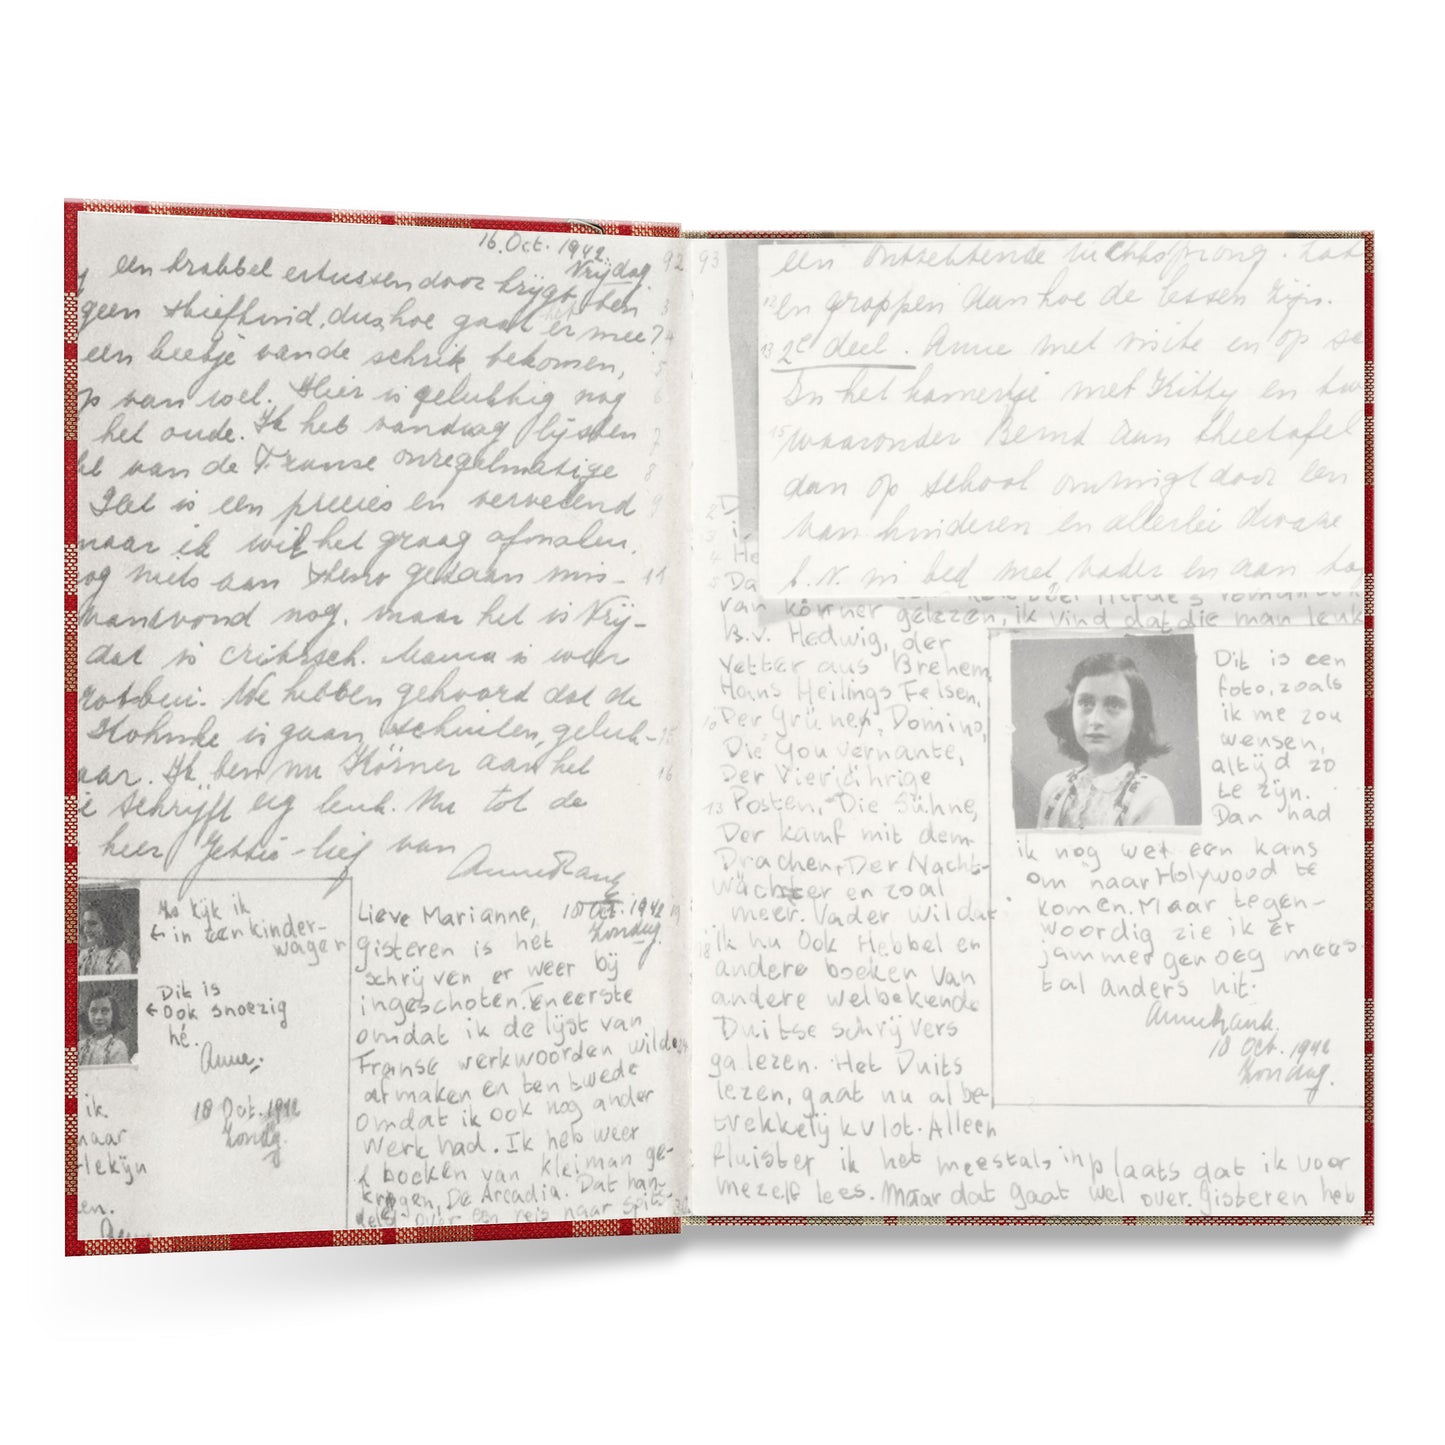 16. Oct. 1942.
Vrijdag.
92
een krabbel ertussendoor krijgt, ben
geen thiefkind, dus hoe gaat er mee?
een beetje van de schrik bekomen,
op van wel. Hier is gelukkig nog
het oude. Ik heb vandaag lijsten
van de Franse onregelmatige
Het is een precies en vervelend
maar ik wil het graag afmalen.
nog niets aan Steno gedaan mis-
vanavond nog. maar het is Vrij-
dat is critisch. Mama is weer
We hebben gehoord dat de
is gaan schuilen, geluk-
aar. Ik ben nu Körner aan het
schrijft erg leuk. Nu tot de
keer Jettie-lief van
Anne Frank
Zo kijk ik
← in een kinder-
wagen
Dit is
← Ook snoezig
hé.
Anne.
18 Oct. 1942
Zondag.
ik
naar
en.
Lieve Marianne,
18 Oct. 1942
Zondag.
Gisteren is het
schrijven er weer bij
ingeschoten. Teneerste
omdat ik de lijst van
Franse werkwoorden wilde
afmaken en ten twede
omdat ik ook nog ander
werk had. Ik heb weer
2 boeken van Kleiman ge-
kregen, De Arcadia. Dat han-
delt over een reis naar Spits-
93
een ontzettende luchtsprong.
en grappen aan hoe de lessen zijn.
2e deel. Anne met visite en op
In het kamertje met Kitty en
waaronder Bernd aan theetafel
dan op school omringt door een
van kinderen en allerlei dwaze
b.v. in bed met vader en aan
He
Da
van körner gelezen, ik vind dat die man leuk
B.v. Hedwig, der
Vetter aus Bremen
Hans Heilings Felsen,
Der Grüner, Domino,
Die Gouvernante,
Der Vierjährige
Posten, Die Sühne,
Der kamf mit dem
Drachen, Der Nacht-
wächter en zoal
meer. Vader wil dat
ik nu Ook Hebbel en
andere boeken van
andere welbekende
Duitse schrijvers
ga lezen. Het Duits
lezen, gaat nu al be-
trekkelijk vlot. Alleen
fluister ik het meestal, inplaats dat ik voor
mezelf lees. Maar dat gaat wel over. Gisteren heb
Dit is een
foto, zoals
ik me zou
wensen,
altijd zo
te zijn.
Dan had
ik nog wel een kans
om naar Holywood te
komen. Maar tegen-
woordig zie ik er
jammer genoeg mees
tal anders uit.
Annefrank.
18 Oct. 1942
Zondag.